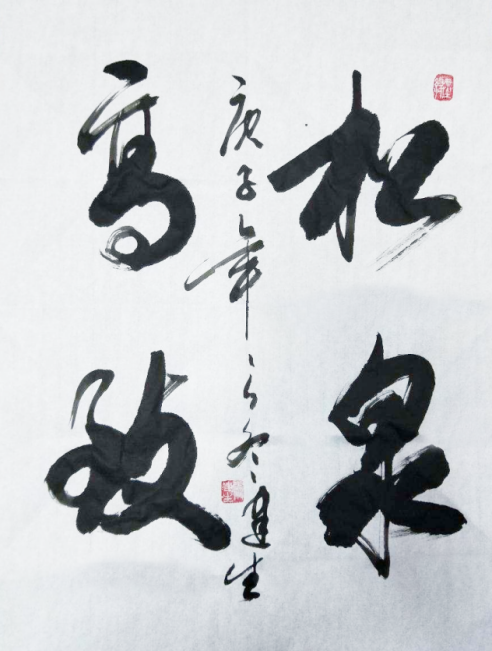 松泉
高致
庚子年冬建生